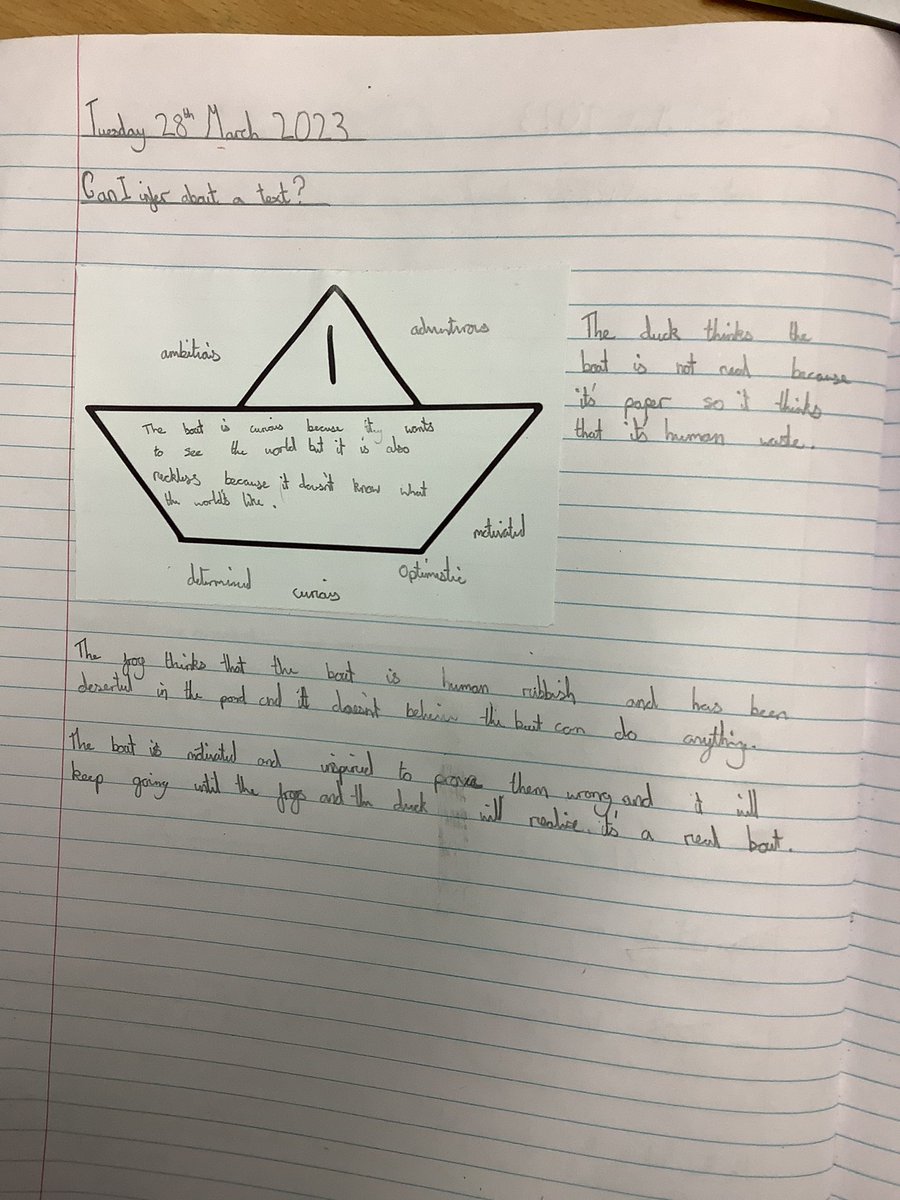 Tuesday 28th March 2023
Can I infer about a text?
ambitious
adventurous
The boat is curious because it wants
to see the world but it is also
reckless because it doesn't know what
the world's like.
motivated
determined
curious
Optimistic
The duck thinks the
boat is not real because
it's paper so it thinks
that it's human waste.
The frog thinks that the boat is human rubbish and has been
deserted in the pond and it doesn't believe the boat can do anything.
The boat is motivated and inspired to prove them wrong and it will
keep going until the frogs and the duck will realise it's a real boat.